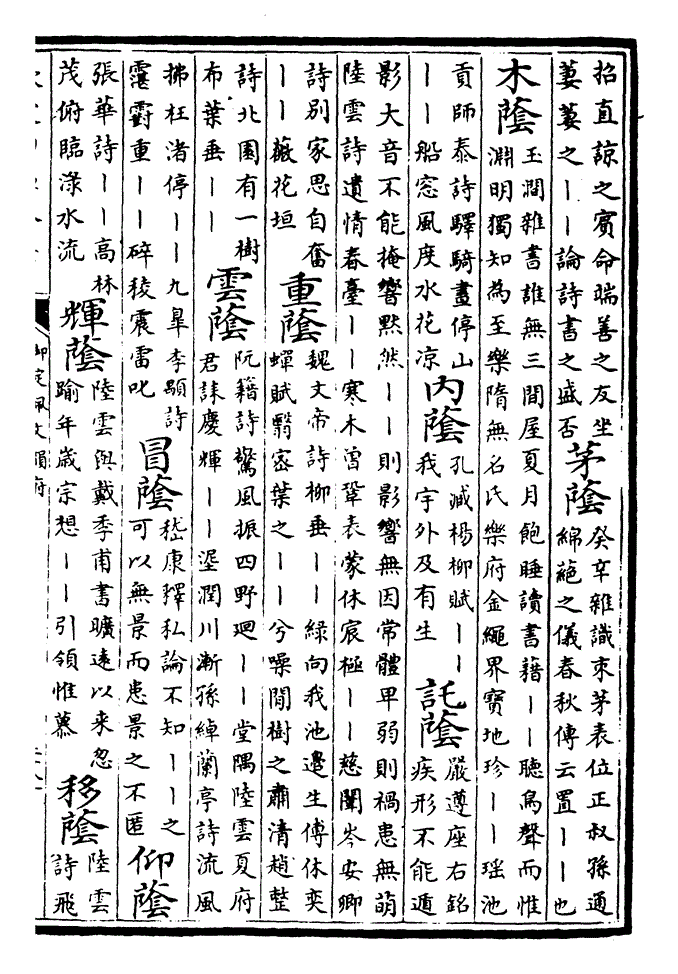 招直諒之賓命端善之友坐
萋萋之丨丨論詩書之盛否
茅蔭
癸辛雜識束茅表位正叔孫通
綿蕝之儀春秋傳云置丨丨也
木蔭
玉澗雜書誰無三間屋夏月飽睡讀書藉丨丨聽鳥聲而惟
淵明獨知為至樂隋無名氏樂府金繩界寶地珍丨丨瑶池
貢師泰詩驛騎晝停山
丨丨船窓風度水花凉
内蔭
孔臧楊柳賦丨丨
我宇外及有生
託蔭
嚴遵座右銘
疾形不能遁
影大音不能掩響默然丨丨則影響無因常體卑弱則禍患無萌
陸雲詩遺情春臺丨丨寒木曾鞏表蒙休宸極丨丨慈闈岑安卿
詩别家思自奮
丨丨薇花垣
重蔭
魏文帝詩柳垂丨丨綠向我池邊生傅休奕
蟬賦翳宻葉之丨丨兮噪閒樹之肅清趙整
詩北園有一樹
布葉垂丨丨
雲蔭
阮籍詩驚風振四野廻丨丨堂隅陸雲夏府
君誄慶輝丨丨渥潤川漸孫綽蘭亭詩流風
拂枉渚停丨丨九臯李顒詩
霮䨴重丨丨碎稜震雷叱
冒蔭
嵇康釋私論不知丨丨之
可以無景而患景之不匿
仰蔭
張華詩丨丨高林
茂俯臨渌水流
輝蔭
陸雲與戴季甫書曠遠以来忽
踰年歲宗想丨丨引領惟慕
移蔭
陸雲
詩飛
御定佩文韻府